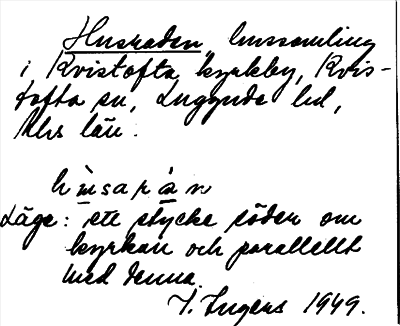 Husraden, hussamling
i Kvistofta kyrkby, Kvis-
tofta sn, Luggude hd,
Mhs län.
hɯsarán
Läge: ett stycke söder om
kyrkan och parallellt
med denna.
I. Ingers 1949.